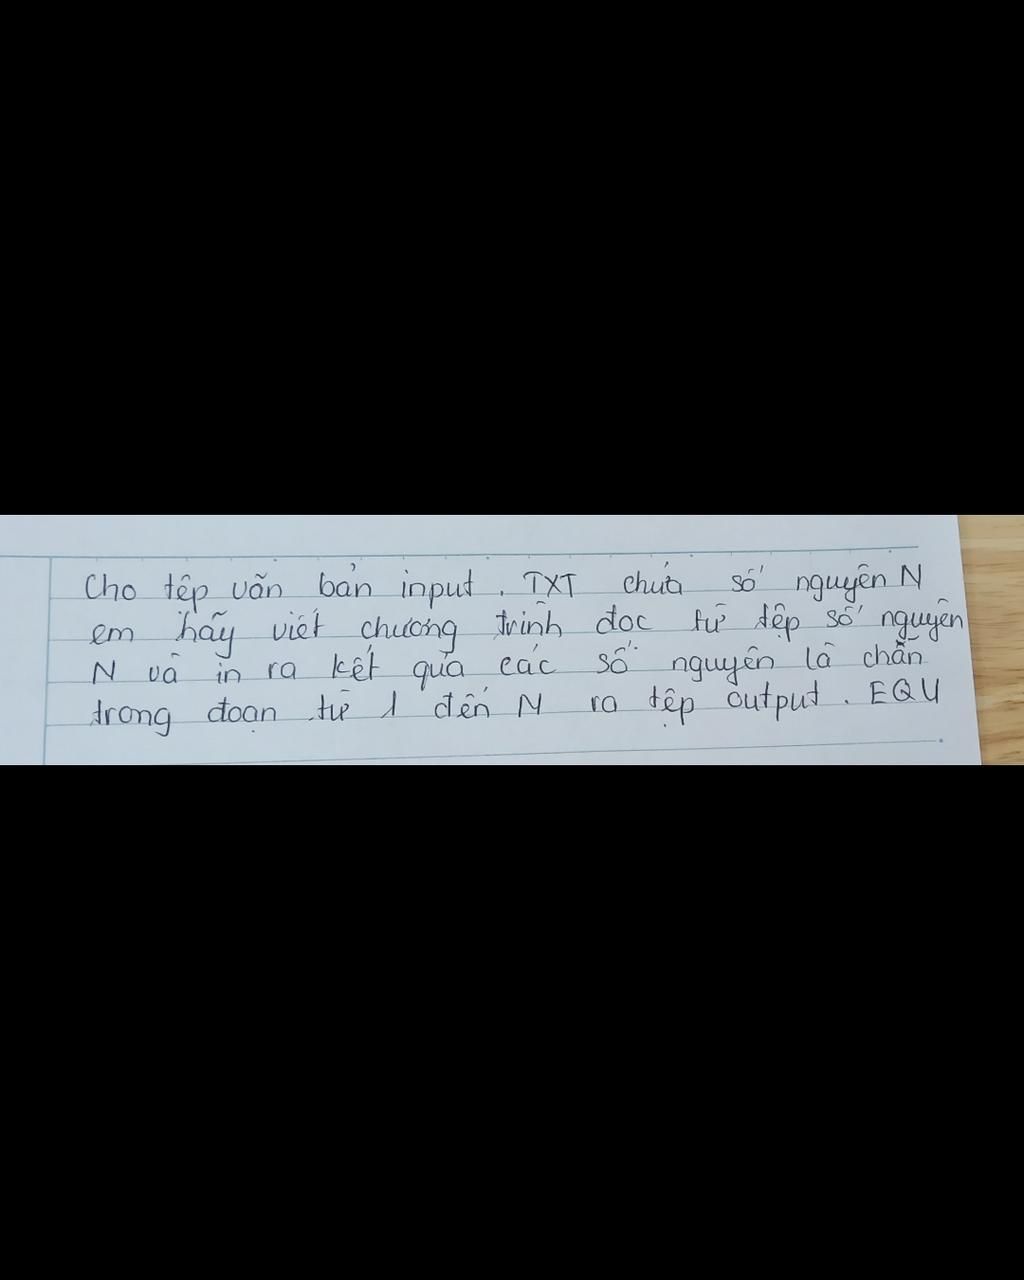 Cho tệp văn bản input. TXT chứa số nguyên N
em hãy viết chương trình đọc từ tệp số nguyên
N và in ra kết quả các số nguyên là chẵn
trong đoạn từ 1 đến N ra tệp output. EQU